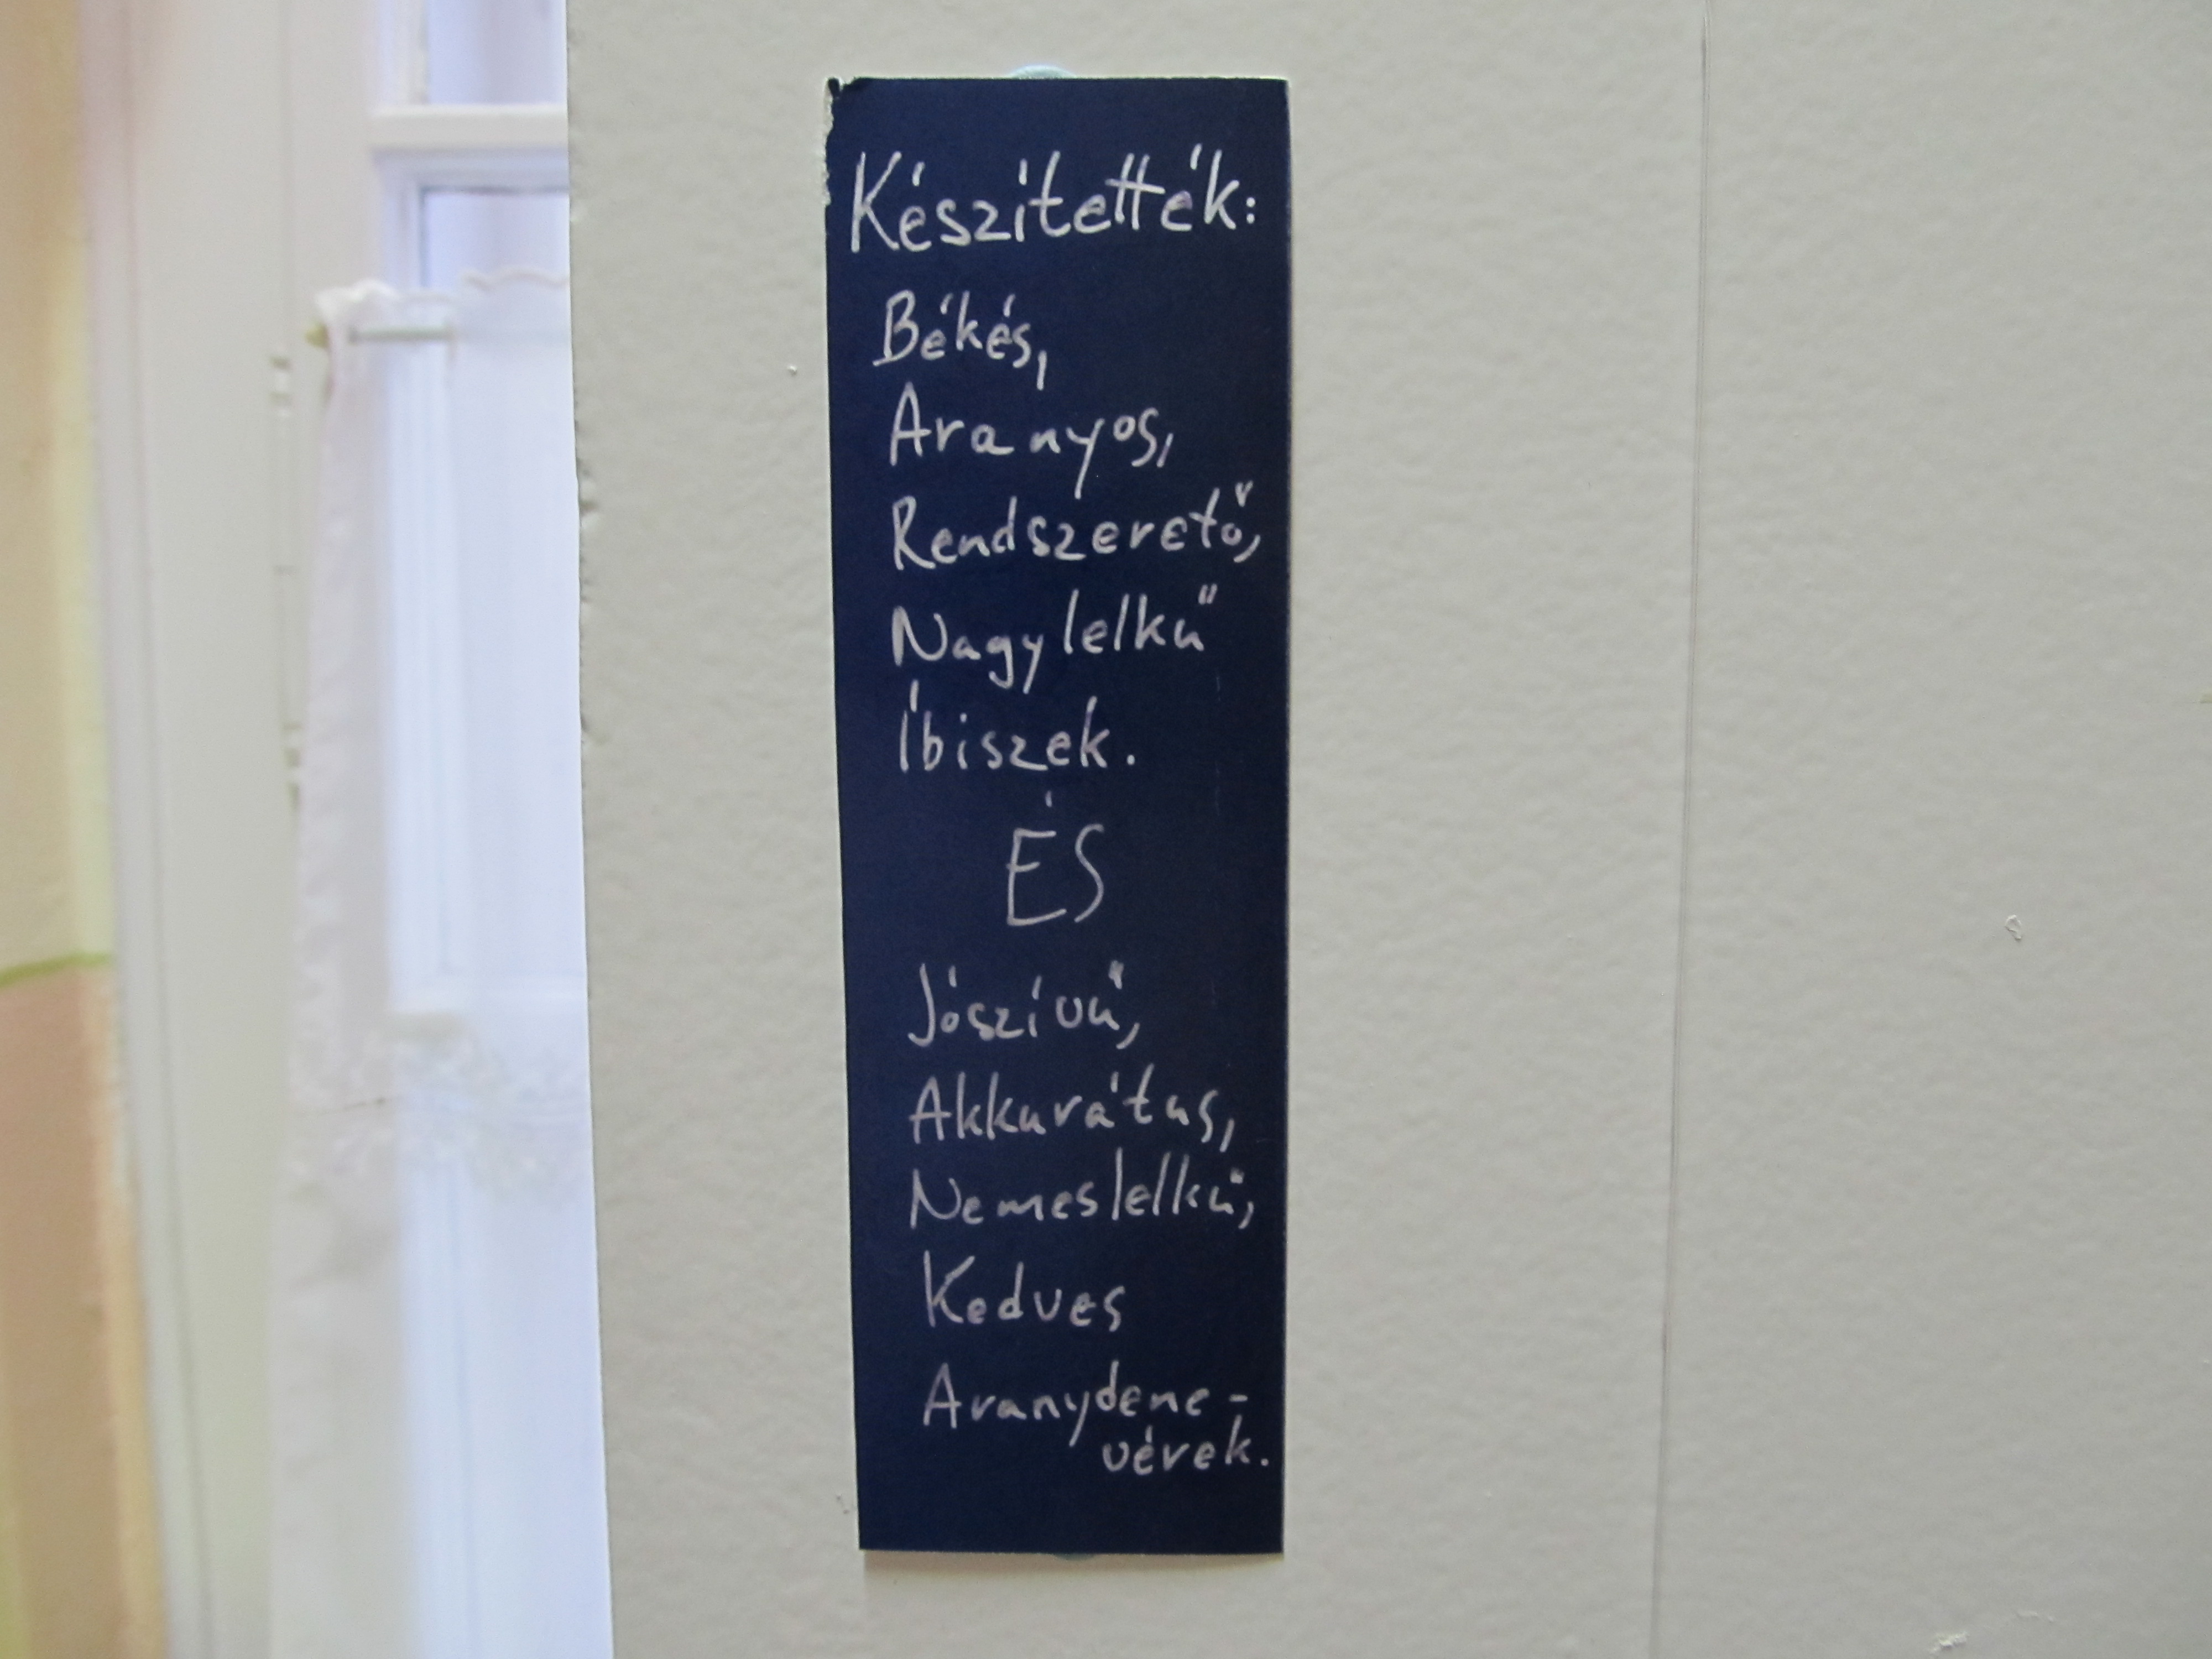 Készítették:
Békés,
Aranyos,
Rendszerető,
Nagylelkű
Íbiszek.
ÉS
Jószívű,
Akkurátus,
Nemeslelkű,
Kedves
Aranydene-
vérek.